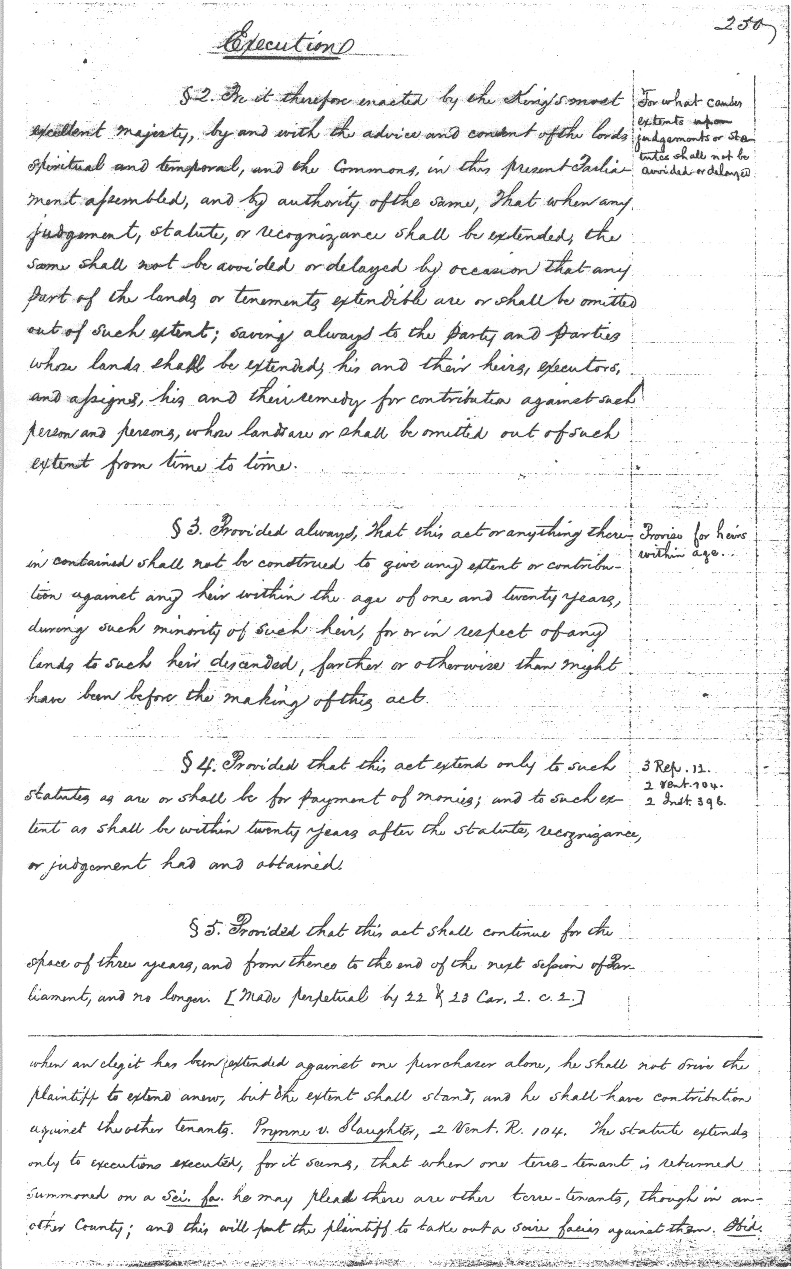 250
Execution
§ 2. Be it therefore enacted by the King's most
excellent majesty, by and with the advice and consent of the lords
spiritual and temporal, and the Commons, in this present Parlia-
ment assembled, and by authority of the same, That when any
judgement, statute, or recognizance shall be extended, the
same shall not be avoided or delayed by occasion that any
part of the lands or tenements extendible are or shall be omitted
out of such extent; saving always to the party and parties
whose lands shall be extended, his and their heirs, executors,
and assigns, his and their remedy for contribution against such
person and persons, whose lands are or shall be omitted out of such
extent from time to time.
For what causes
extents upon
judgements or sta-
tutes shall not be
avoided or delayed
§ 3. Provided always, That this act or anything there-
in contained shall not be construed to give any extent or contribu-
tion against any heir within the age of one and twenty years,
during such minority of such heir, for or in respect of any
lands to such heir descended, farther or otherwise than might
have been before the making of this act.
Proviso for heirs
within age...
§ 4. Provided that this act extend only to such
statutes as are or shall be for payment of monies; and to such ex-
tent as shall be within twenty years after the statute, recognizance,
or judgement had and obtained.
3 Rep. 12.
2 Vent. 104.
2 Inst. 396.
§ 5. Provided that this act shall continue for the
space of three years, and from thence to the end of the next session of Par-
liament, and no longer. [Made perpetual by 22 & 23 Car. 2. c. 2.]
when an elegit has been extended against one purchaser alone, he shall not drive the
plaintiff to extend anew, but the extent shall stand, and he shall have contribution
against the other tenants. Prynne v. Slaughter, 2 Vent. R. 104. The statute extends
only to executions executed, for it seems, that when one terre-tenant is returned
summoned on a Sci. fa. he may plead there are other terre-tenants, though in an-
other County; and this will put the plaintiff to take out a scire facias against them. Ibid.